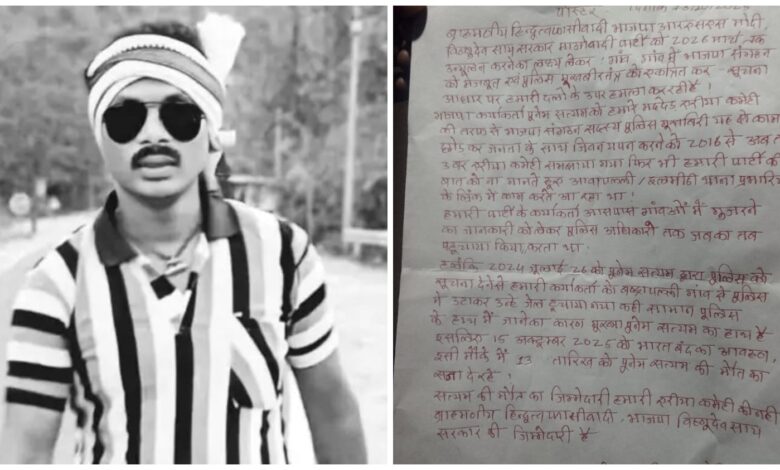 पोस्टर दिनांक 13/10/2025
ब्राहमणीय हिन्दुत्व फासीवादी भाजपा आरएसएस मोदी,
विष्णुदेव साय सरकार माओवादी पार्टी को 2026 मार्च तक
उन्मुलन करनेका लक्ष्य लेकर गांव गांव में भाजपा संगठन
को मजबूत एवं पुलिस मुखबीर तंत्र को एकत्रित कर सूचना
आधार पर हमारी दलों के उपर हमला कर रही है।
भाजपा कार्यकर्ता पुनेम सत्यम को हमारे मद्देड एरीया कमेटी
की तरफ से भाजपा संगठन सदस्य पुलिस मुखबिरी यह से काम
छोड कर जनता के साथ जिवन यापन करने को 2016 से अब तक
3 बार एरीया कमेटी समझाया गया फिर भी हमारी पार्टी की
बात को ना मानते हुए आवापल्ली / इलमीडी थाना प्रभारी
के लिंक में काम करते आ रहा था।
हमारी पार्टी के कार्यकर्ता आसपास गांवओं में गुजरने
का जानकारी को लेकर पुलिस अधिकारी तक जब का तब
पहूचाया किया करता था।
हलांकि 2024 जुलाई 26 को पुनेम सत्यम द्वारा पुलिस को
सूचना देने से हमारी कार्यकर्ता को गांव से पुलिस
ने उठाकर उन्हे जेल ठूचाया गया कही सामान पुलिस
के हाथ में जानेका कारण मुख्बा पुनेम सत्यम का हाथ है
इसलिए 15 अक्टूबर 2025 को भारत बंद का आवस्था,
इसी मौके में 13 तारिख को पुनेम सत्यम की मौत का
सजा दे रहे।
सत्यम की मौत का जिम्मेदारी हमारी एरीया कमेटी की नही
ब्राहमणीय हिन्दुत्वफासीवादी, भाजपा विष्णुदेव साय
सरकार की जिम्मेदारी है